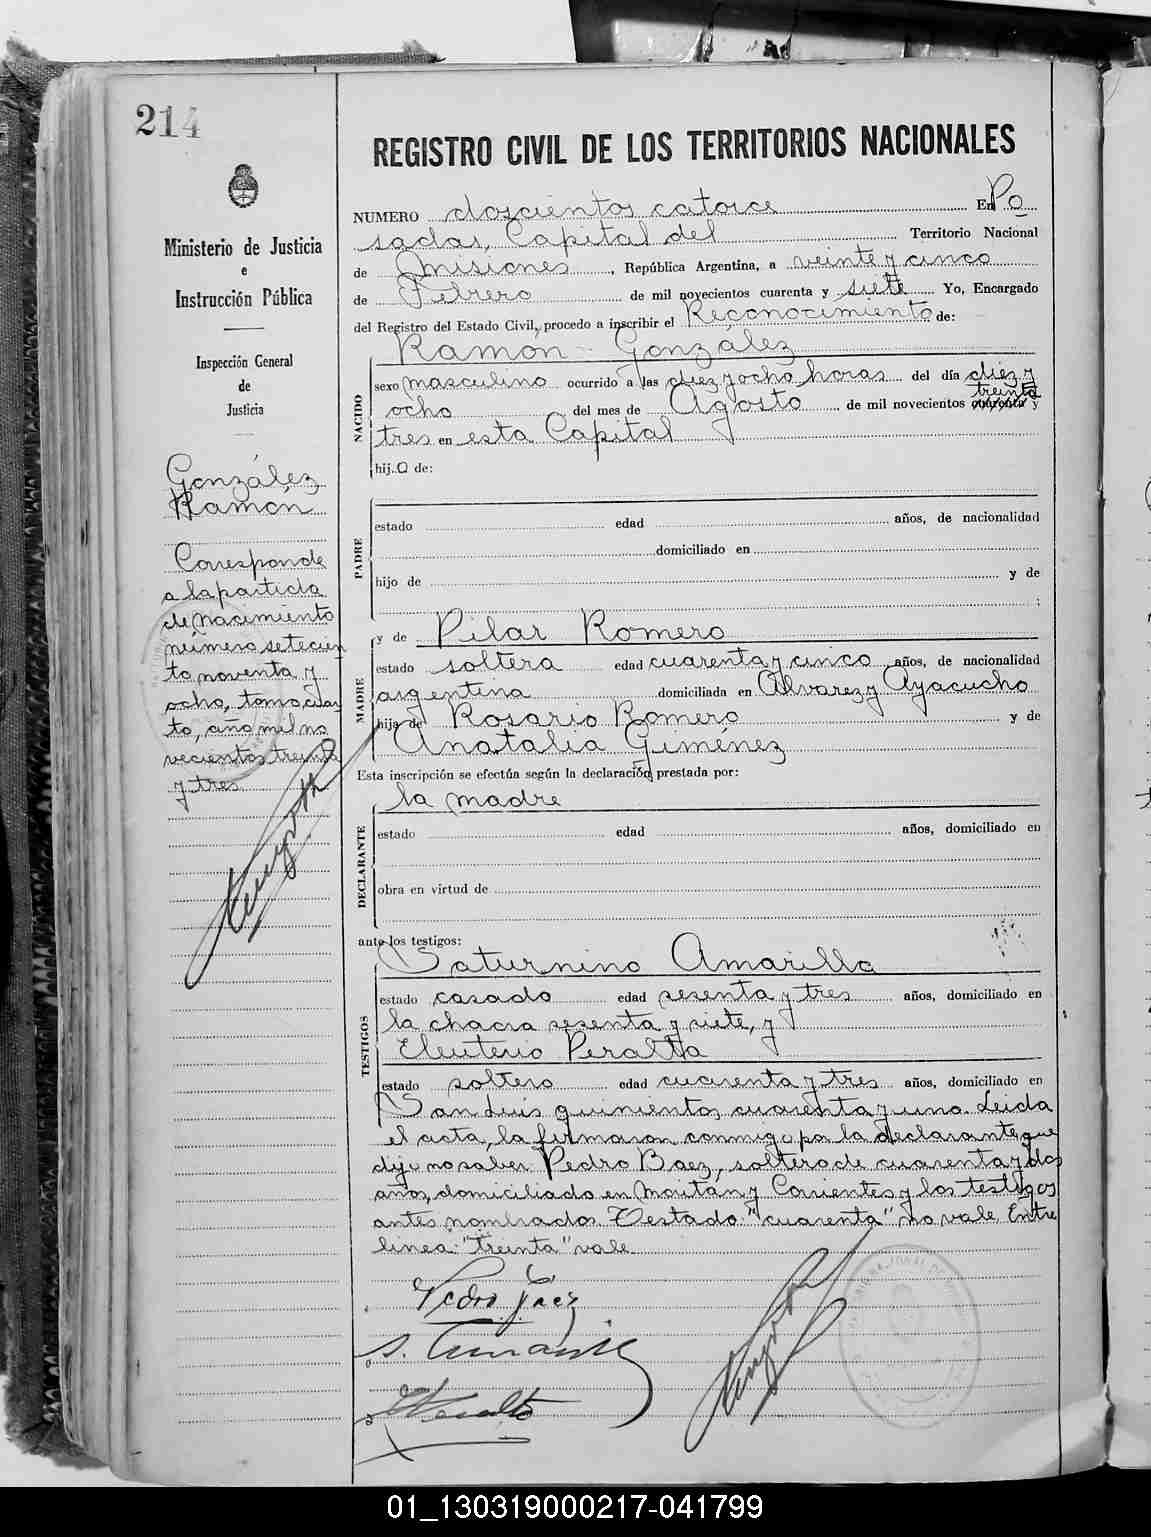 214
Ministerio de Justicia
e
Instrucción Pública
Inspección General
de
Justicia
González
Ramón
Corresponde
a la partida
de nacimiento
número setecien
to noventa y
ocho, tomo cuar
to, año mil no
vecientos treinta
y tres.
REGISTRO CIVIL DE LOS TERRITORIOS NACIONALES
NUMERO doscientos catorce En Po
sadas, Capital del Territorio Nacional
de Misiones, República Argentina, a veinte y cinco
de Febrero de mil novecientos cuarenta y siete Yo, Encargado
del Registro del Estado Civil, procedo a inscribir el Reconocimiento de:
Ramón González
NACIDO
sexo masculino ocurrido a las diez y ocho horas del día diez y
treinta
ocho del mes de Agosto de mil novecientos cuarenta y
tres en esta Capital
hij.o de:
PADRE
estado edad años, de nacionalidad
domiciliado en
hijo de y de
;
MADRE
y de Pilar Romero
estado soltera edad cuarenta y cinco años, de nacionalidad
argentina domiciliada en Alvarez y Ayacucho
hija de Rosario Romero y de
Anatalia Giménez
Esta inscripción se efectúa según la declaración prestada por:
la madre
DECLARANTE
estado edad años, domiciliado en
obra en virtud de
ante los testigos:
TESTIGOS
Saturnino Amarilla
estado casado edad sesenta y tres años, domiciliado en
la chacra sesenta y siete, y
Eleuterio Peralta
estado soltero edad cuarenta y tres años, domiciliado en
San Luis quinientos cuarenta y uno. Leida
el acta, la firmaron conmigo por la declarante que
dijo no saber Pedro Baez, soltero de cuarenta y dos
años, domiciliado en Moritán y Corrientes y los testigos
antes nombrados. Testado: "cuarenta" no vale. Entre
linea: "treinta" vale.
Pedro Baez
S. Amarilla
E Peralta
01_130319000217-041799